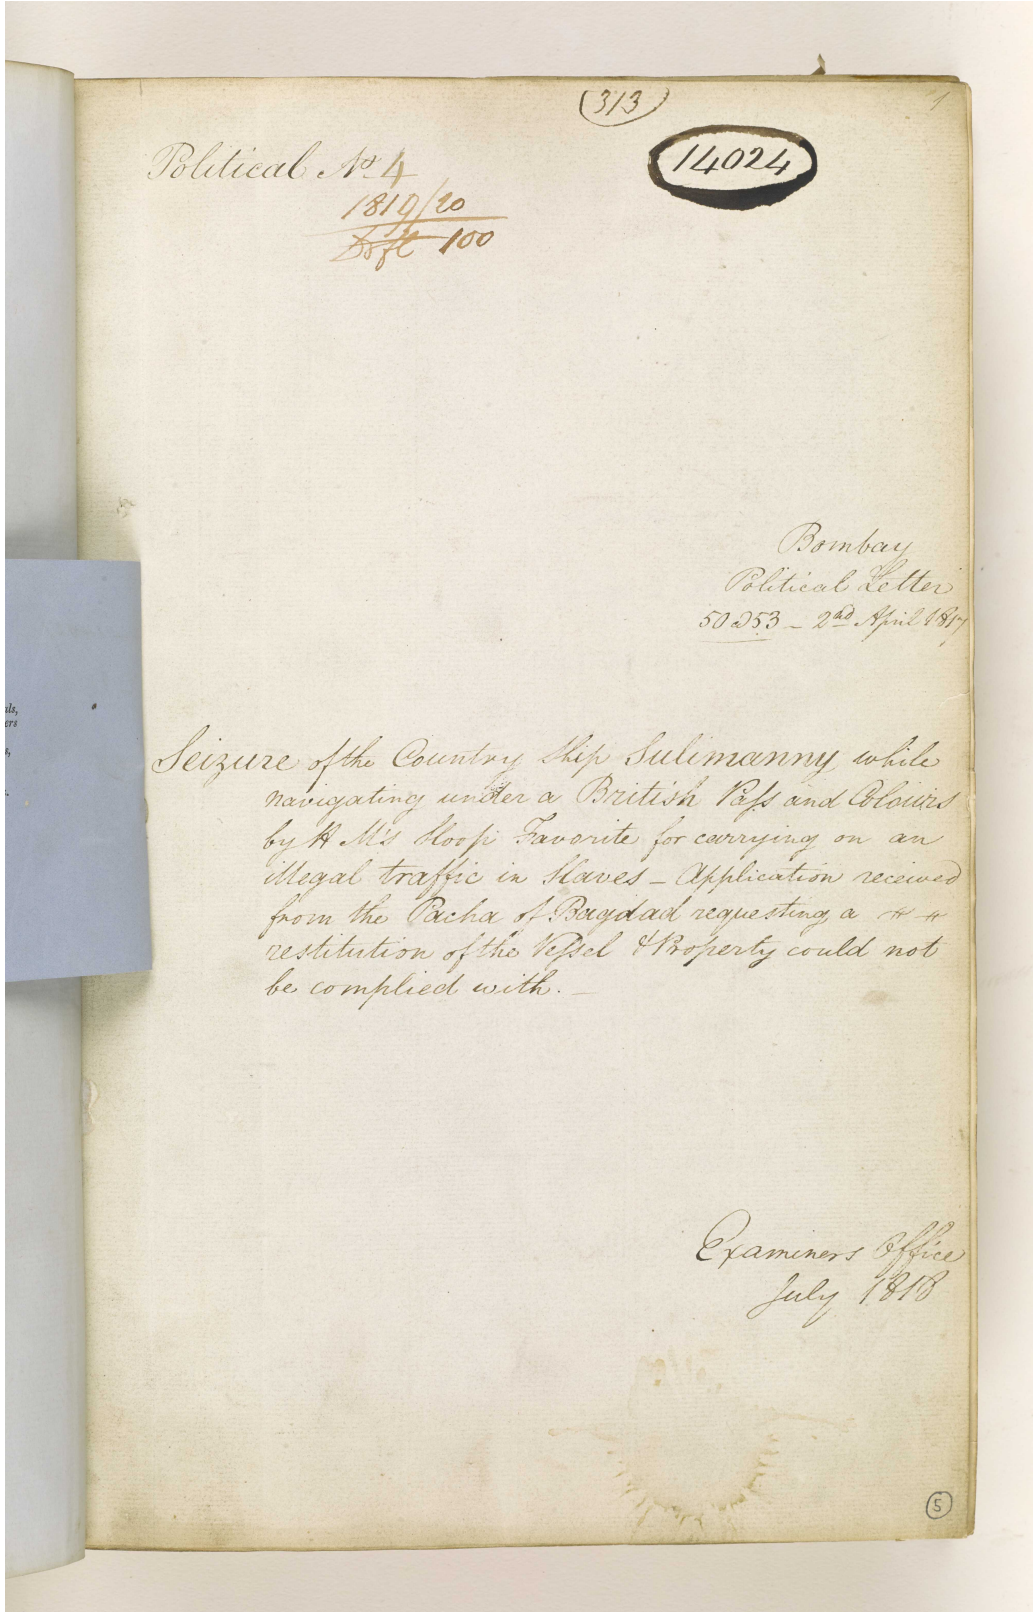 (313)
1
14024
Political No. 4
1819/20
Dr̶f̶t̶ 100
Bombay
Political Letter
50 a 53 - 2nd April 1817
als,
ers
s,
Seizure of the Country Ship Sulimanny while
navigating under a British Pass and Colours
by H M's Sloop Favorite for carrying on an
illegal traffic in Slaves - Application received
from the Pacha of Bagdad requesting a
restitution of the Vessel & Property could not
be complied with. -
Examiners Office
July 1818
5